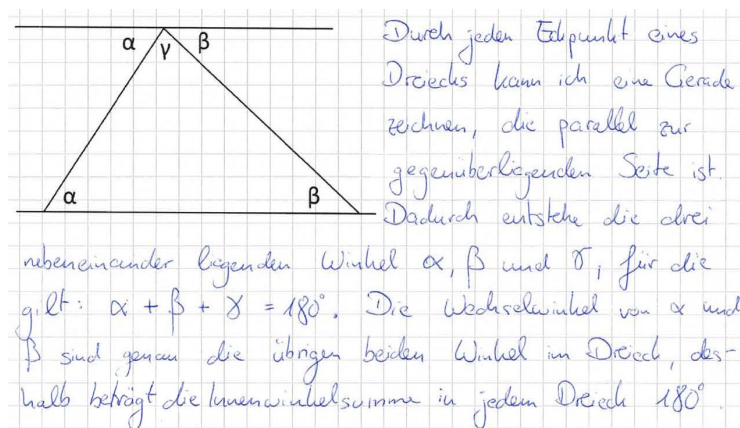 α γ β
α β
Durch jeden Eckpunkt eines
Dreiecks kann ich eine Gerade
zeichnen, die parallel zur
gegenüberliegenden Seite ist.
Dadurch entstehe die drei
nebeneinander liegenden Winkel α, β und γ, für die
gilt: α + β + γ = 180°. Die Wechselwinkel von α und
β sind genau die übrigen beiden Winkel im Dreieck, des-
halb beträgt die Innenwinkelsumme in jedem Dreieck 180°.